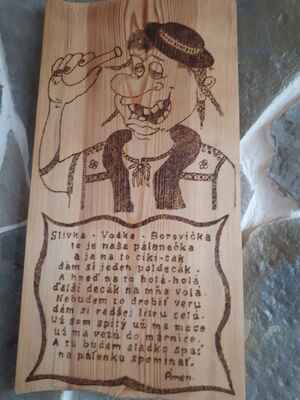 Slivka - Vodka - Borovička
to je naša pálenečka
a ja na to ciki-cak
dám si jeden poldecák.
A hneď na to holá-holá
ďalší decák na mňa volá.
Nebudem to drobiť veru
dám si radšej litru celú.
Už som spitý už ma mece
už ma vezú do márnice.
A tu budem sladko spať
na pálenku spomínať.
Amen.